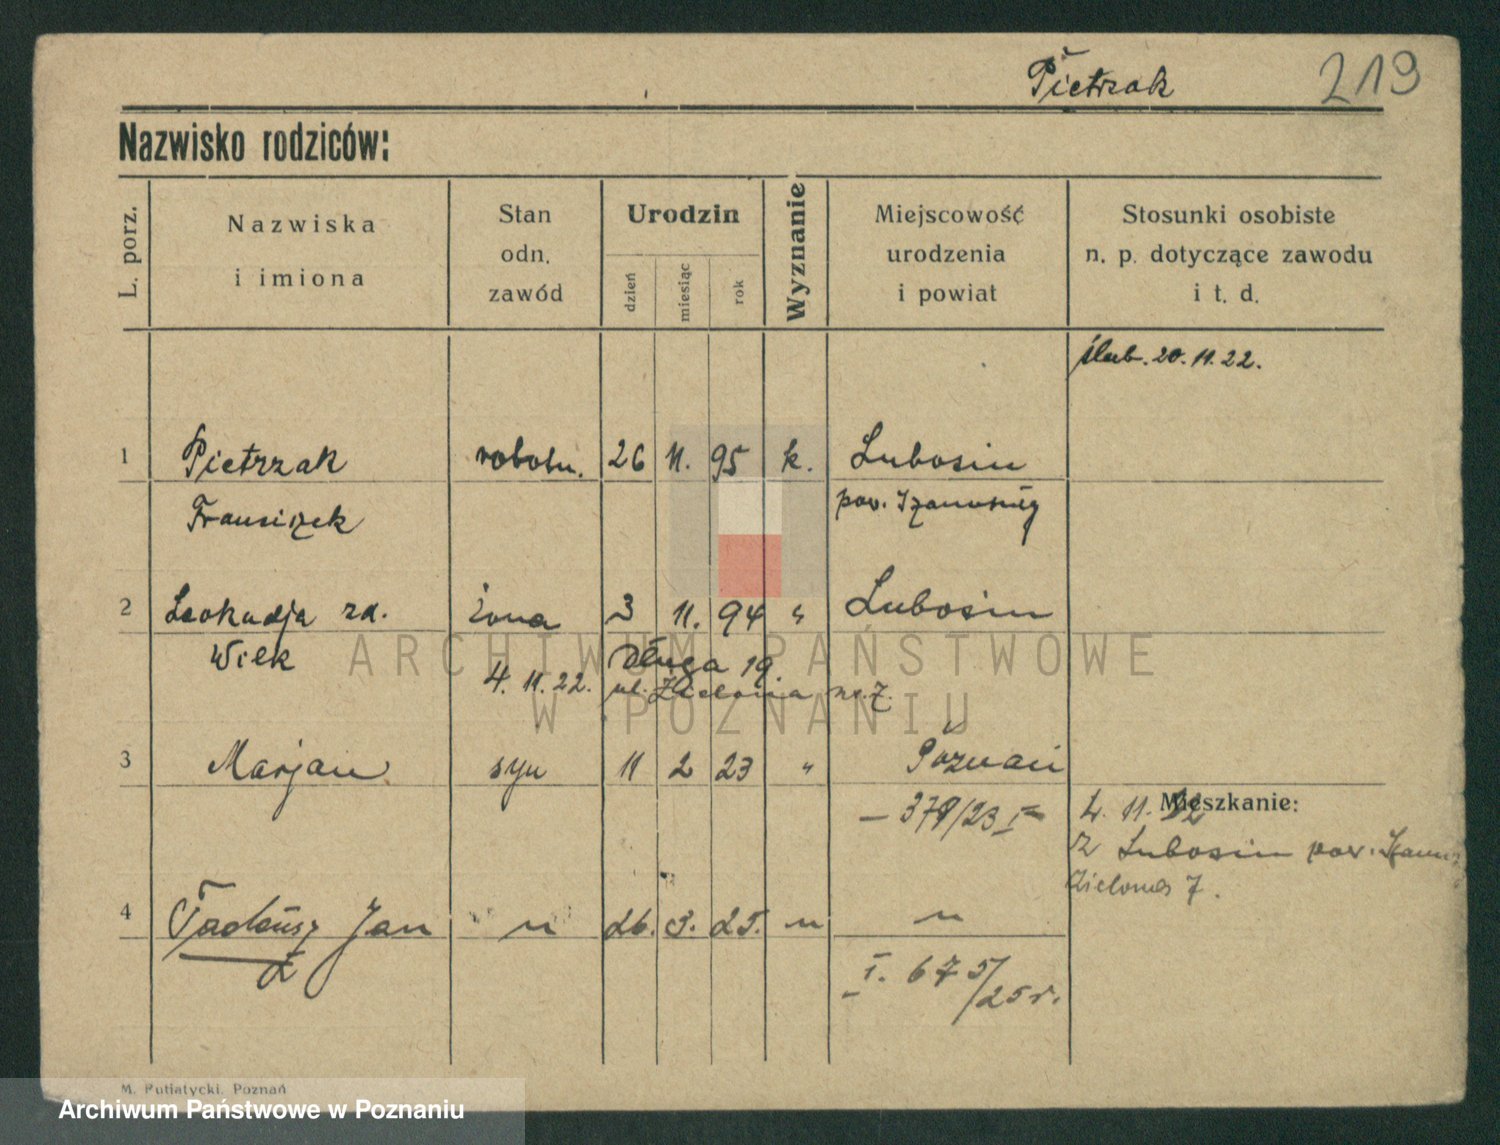 Pietrzak 219
Nazwisko rodziców:
L. porz.
Nazwiska
i imiona
Stan
odn.
zawód
Urodzin
dzień
miesiąc
rok
Wyznanie
Miejscowość
urodzenia
i powiat
Stosunki osobiste
n. p. dotyczące zawodu
i t. d.
ślub. 20. 11. 22.
1 Pietrzak robotn. 26 11. 95 k. Lubosin
Franciszek pow.
2 Leokadja zd. żona 3 11. 94 " Lubosin
Wilk Długa 19.
4. 11. 22. ul. Zielona nr. 7.
ARCHIWUM PAŃSTWOWE
W POZNANIU
3 Marjan syn 11 2 23 " Poznań
Mieszkanie:
4. 11. 22
z Lubosin pow.
Zielona 7.
4 Tadeusz Jan " 26. 3. 25. " "
I. 675/25 r.
M. Putiatycki, Poznań
Archiwum Państwowe w Poznaniu